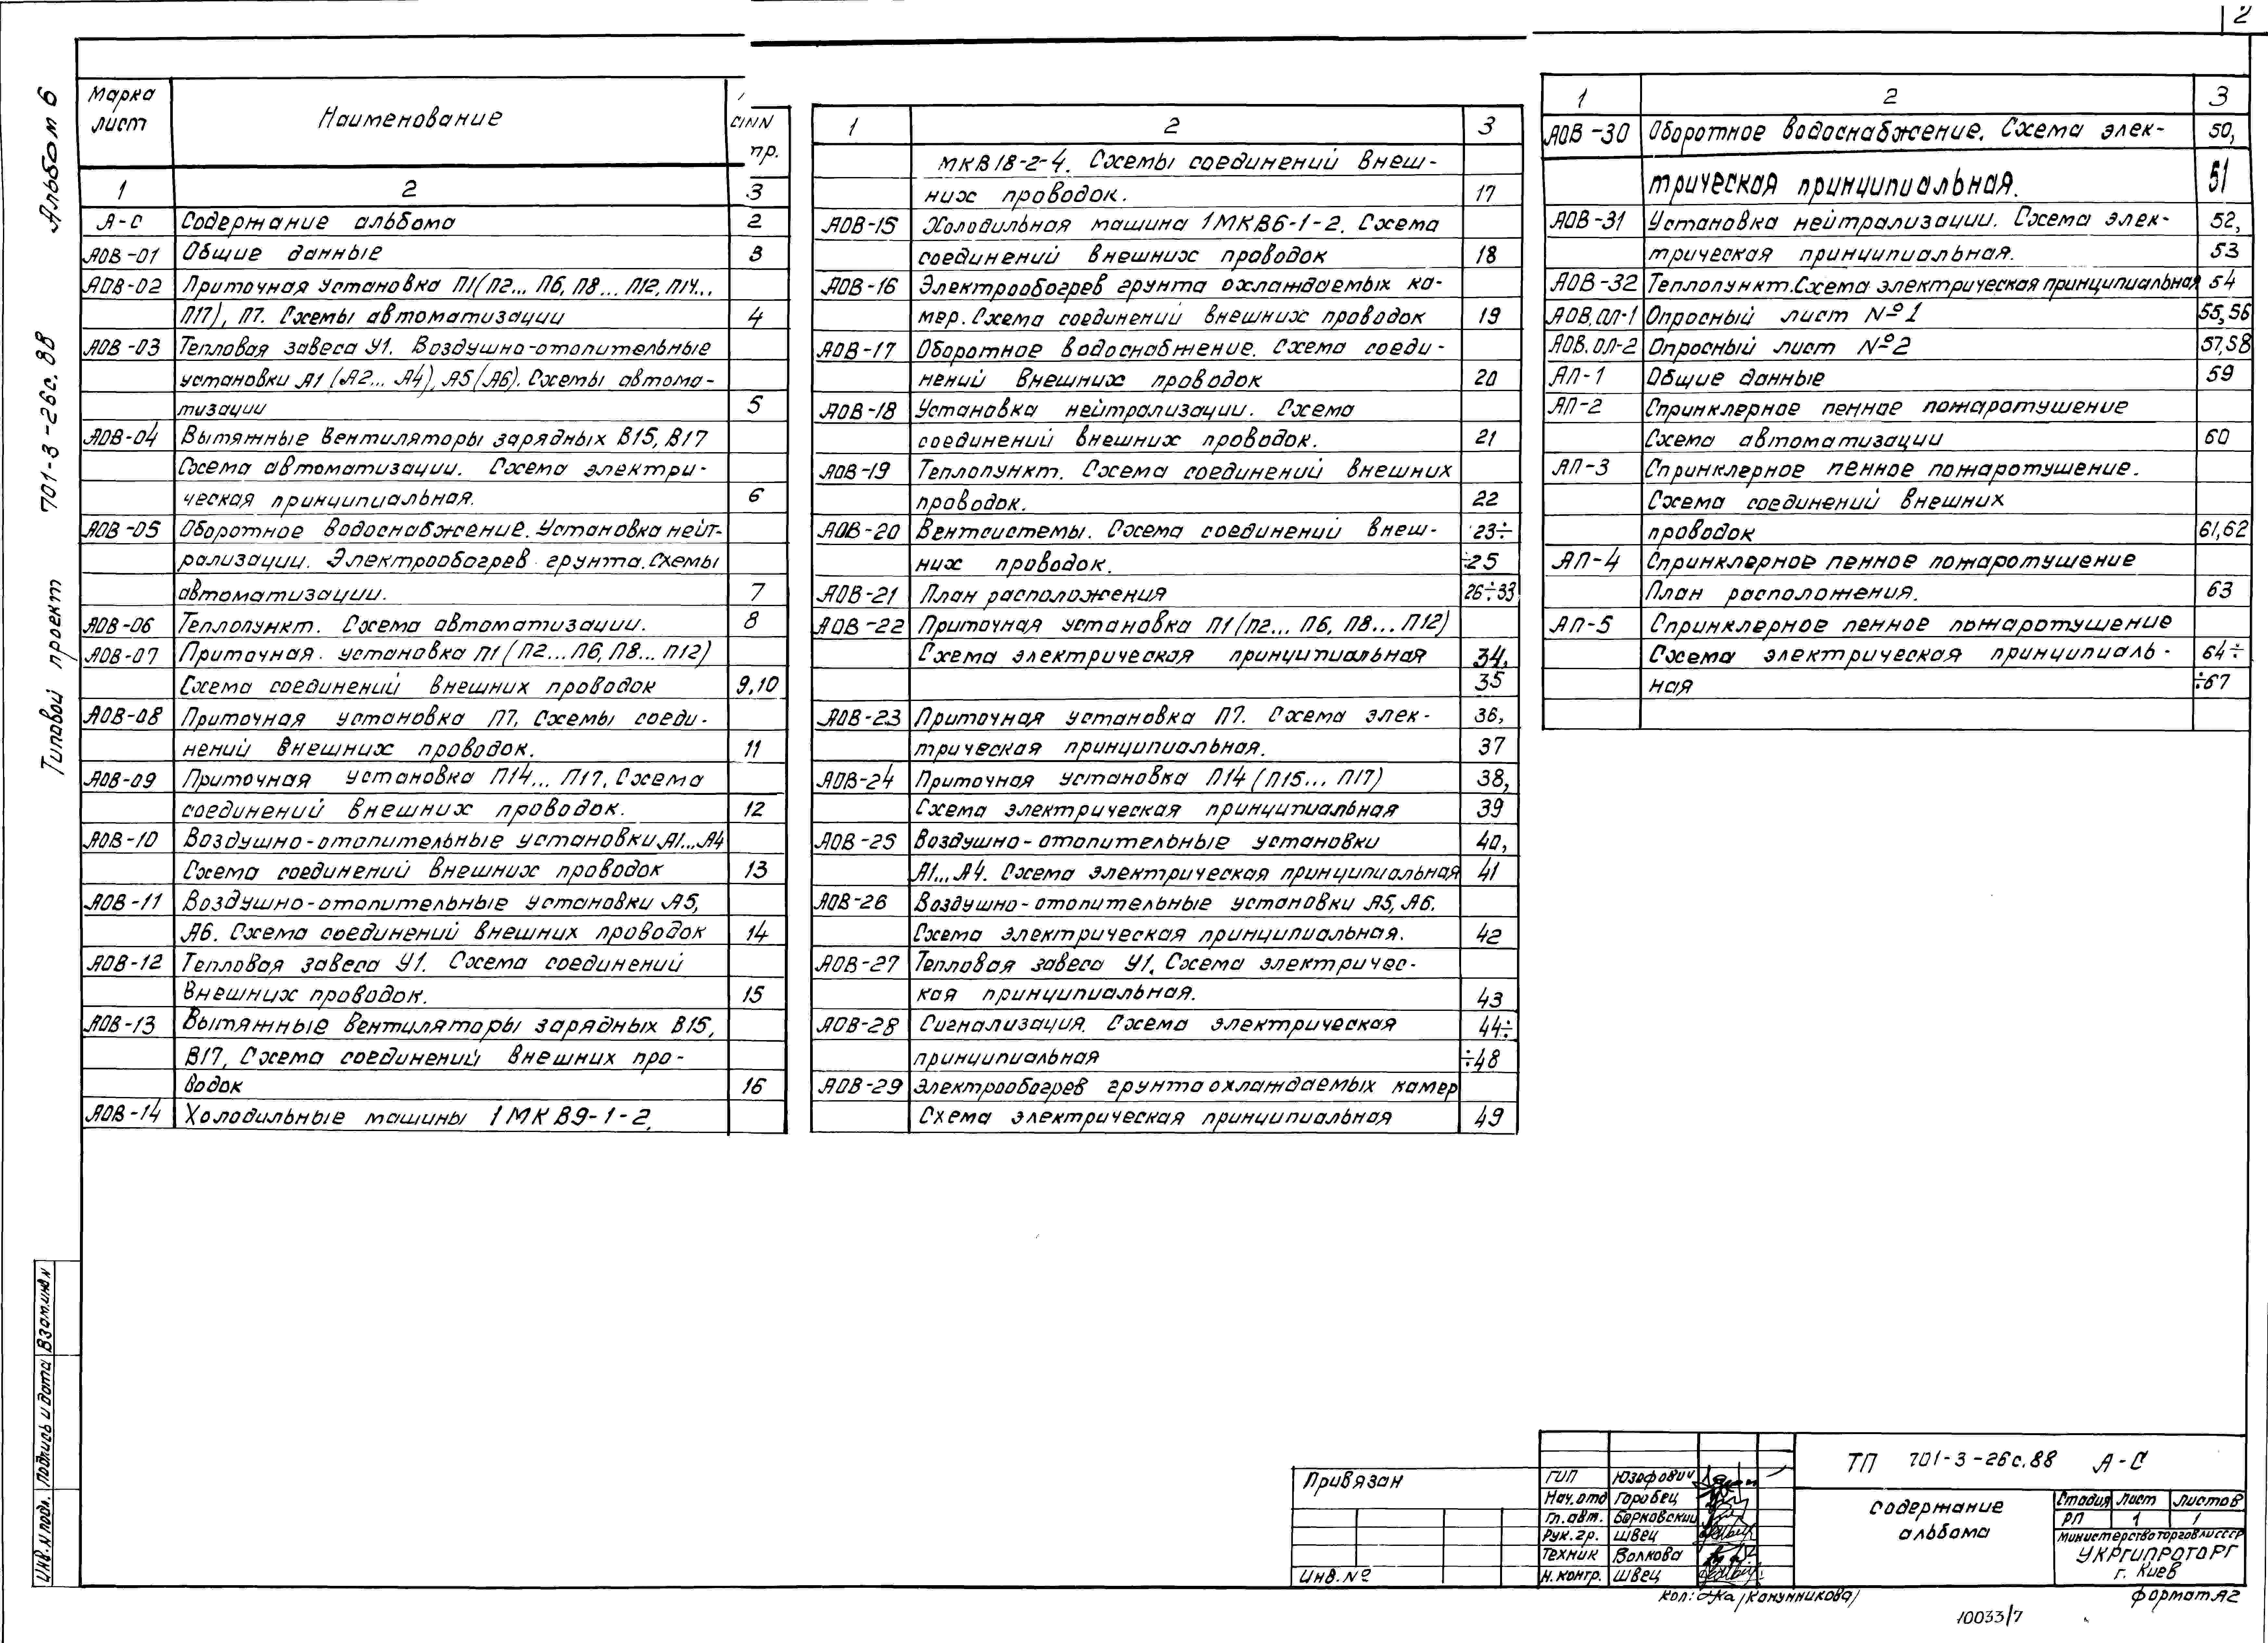 2
Альбом 6
Типовой проект 701-3-26с.88
Марка лист
Наименование
пр.
1 2 3
А-С Содержание альбома 2
АОВ-01 Общие данные 3
АОВ-02 Приточная установка П1(П2... П6, П8... П12, П14...
П17), П7. Схемы автоматизации 4
АОВ-03 Тепловая завеса У1. Воздушно-отопительные
установки А1 (А2... А4), А5(А6). Схемы автома-
тизации 5
АОВ-04 Вытяжные вентиляторы зарядных В15, В17
Схема автоматизации. Схема электри-
ческая принципиальная. 6
АОВ-05 Оборотное водоснабжение. Установка нейт-
рализации. Электрообогрев грунта. Схемы
автоматизации. 7
АОВ-06 Теплопункт. Схема автоматизации. 8
АОВ-07 Приточная установка П1 (П2...П6, П8... П12)
Схема соединений внешних проводок 9,10
АОВ-08 Приточная установка П7. Схемы соеди-
нений внешних проводок. 11
АОВ-09 Приточная установка П14... П17. Схема
соединений внешних проводок. 12
АОВ-10 Воздушно-отопительные установки А1...А4
Схема соединений внешних проводок 13
АОВ-11 Воздушно-отопительные установки А5,
А6. Схема соединений внешних проводок 14
АОВ-12 Тепловая завеса У1. Схема соединений
внешних проводок. 15
АОВ-13 Вытяжные вентиляторы зарядных В15,
В17, Схема соединений внешних про-
водок 16
АОВ-14 Холодильные машины 1МКВ9-1-2,
1 2 3
МКВ18-2-4. Схемы соединений внеш-
них проводок. 17
АОВ-15 Холодильная машина 1МКВ6-1-2. Схема
соединений внешних проводок 18
АОВ-16 Электрообогрев грунта охлаждаемых ка-
мер. Схема соединений внешних проводок 19
АОВ-17 Оборотное водоснабжение. Схема соеди-
нений внешних проводок 20
АОВ-18 Установка нейтрализации. Схема
соединений внешних проводок. 21
АОВ-19 Теплопункт. Схема соединений внешних
проводок. 22
АОВ-20 Вентсистемы. Схема соединений внеш- 23÷
них проводок. ÷25
АОВ-21 План расположения 26÷33
АОВ-22 Приточная установка П1 (П2... П6, П8...П12)
Схема электрическая принципиальная 34,
35
АОВ-23 Приточная установка П7. Схема элек- 36,
трическая принципиальная. 37
АОВ-24 Приточная установка П14 (П15... П17) 38,
Схема электрическая принципиальная 39
АОВ-25 Воздушно-отопительные установки 40,
А1...А4. Схема электрическая принципиальная 41
АОВ-26 Воздушно-отопительные установки А5, А6.
Схема электрическая принципиальная. 42
АОВ-27 Тепловая завеса У1. Схема электричес-
кая принципиальная. 43
АОВ-28 Сигнализация. Схема электрическая 44÷
принципиальная ÷48
АОВ-29 Электрообогрев грунта охлаждаемых камер
Схема электрическая принципиальная 49
1 2 3
АОВ-30 Оборотное водоснабжение. Схема элек- 50,
трическая принципиальная. 51
АОВ-31 Установка нейтрализации. Схема элек- 52,
трическая принципиальная. 53
АОВ-32 Теплопункт. Схема электрическая принципиальная 54
АОВ.ОЛ-1 Опросный лист №1 55,56
АОВ.ОЛ-2 Опросный лист №2 57,58
АП-1 Общие данные 59
АП-2 Спринклерное пенное пожаротушение
Схема автоматизации 60
АП-3 Спринклерное пенное пожаротушение.
Схема соединений внешних
проводок 61,62
АП-4 Спринклерное пенное пожаротушение
План расположения. 63
АП-5 Спринклерное пенное пожаротушение
Схема электрическая принципиаль- 64÷
ная ÷67
Инв.N подл. Подпись и дата Взам.инв.N
Привязан
Инв.№
ГИП Юзефович
Нач.отд Горобец
Гл.авт. Берковский
Рук.гр. Швец
Техник Волкова
Н.контр. Швец
ТП 701-3-26с.88 А-С
Содержание
альбома
Стадия Лист Листов
РП 1 1
Министерство торговли СССР
УКРГИПРОТОРГ
г. Киев
Кол: (Канунникова)
Формат А2
10033/7